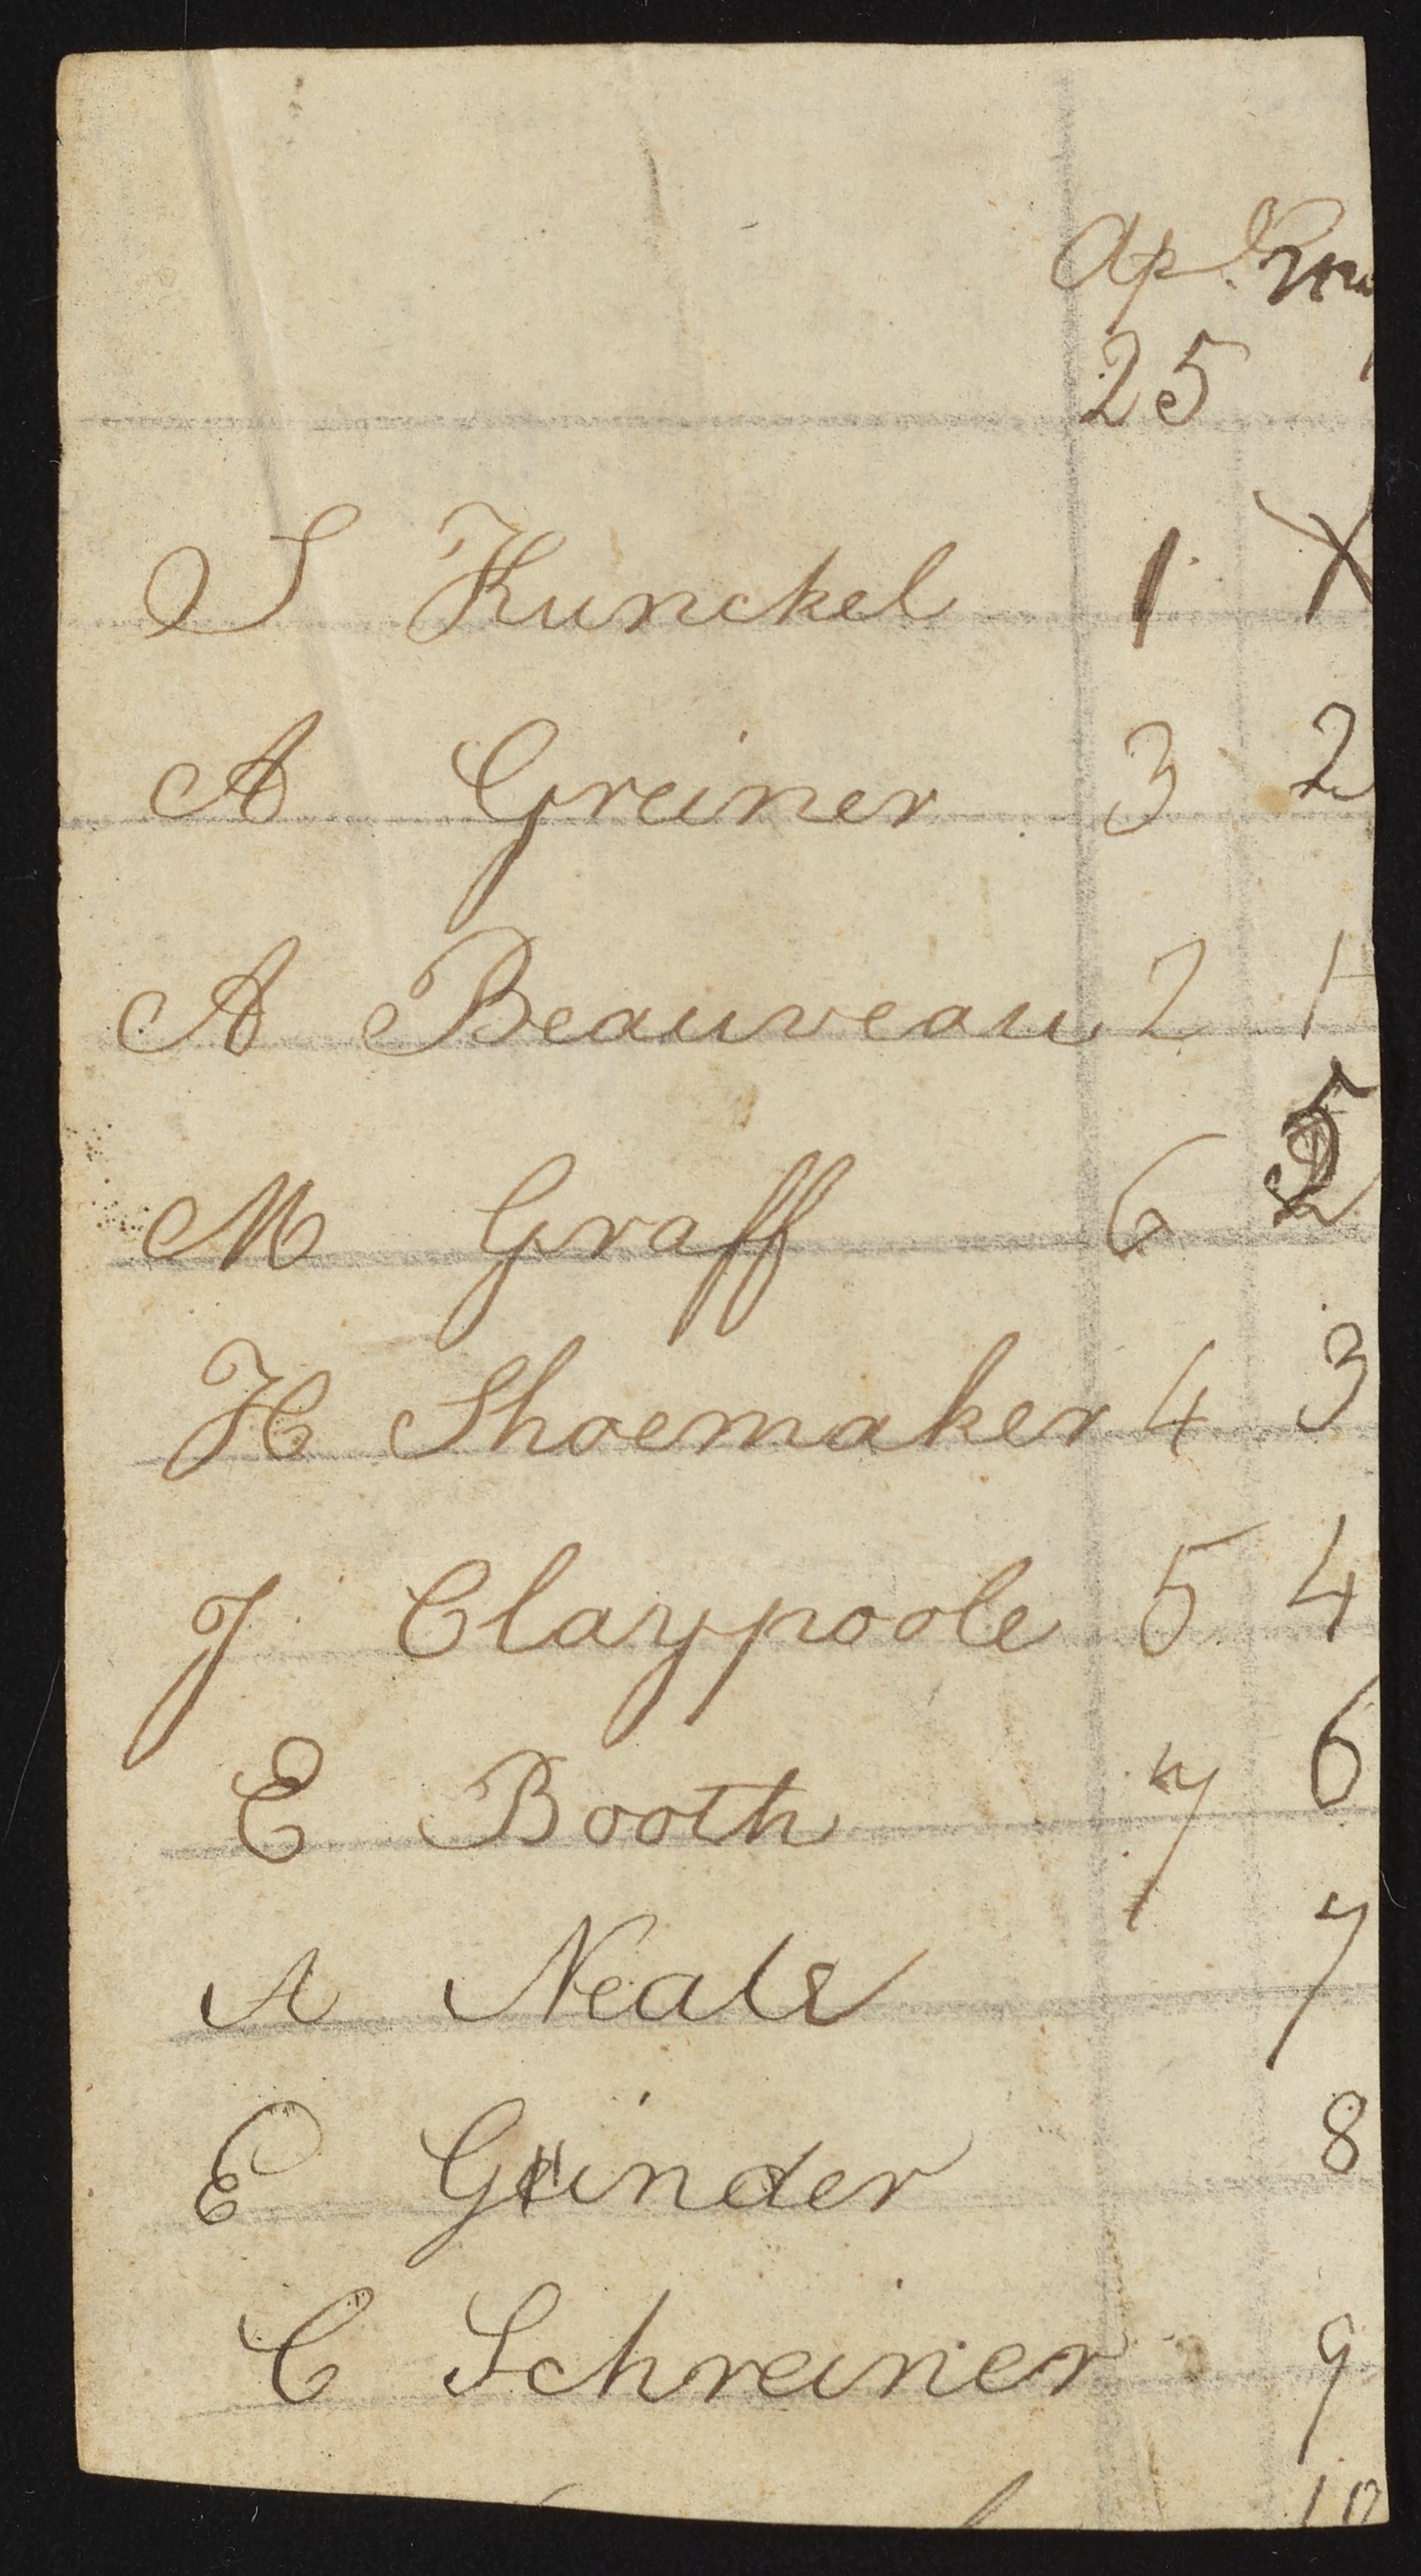 Ap
25
S Kunckel 1 X
A Greiner 3 2
A Beauveau 2 1
M Graff 6 5
H Shoemaker 4 3
J Claypoole 5 4
E Booth 7 6
A Neale 7
E Guinder 8
C Schreiner 9
10